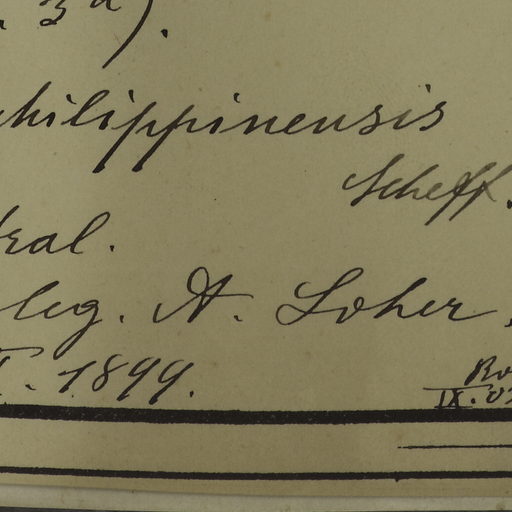 3 a).
philippinensis
Scheff.
tral.
leg. A. Loher.
I. 1899.
IX. 0